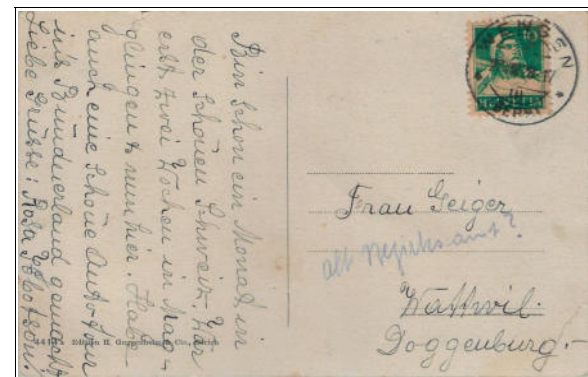 Bin schon ein Monat in
der schönen Schweiz. War
erst zwei Wochen in Mag-
glingen & nun hier. Habe
auch eine schöne Autotour
ins Bündnerland gemacht.
Liebe Grüsse: Rosa
Edition H. Guggenheim & Co., Zürich
10
HELVETIA
Frau Geiger
alt Bezirksamt?
Wattwil.
Doggenburg.-